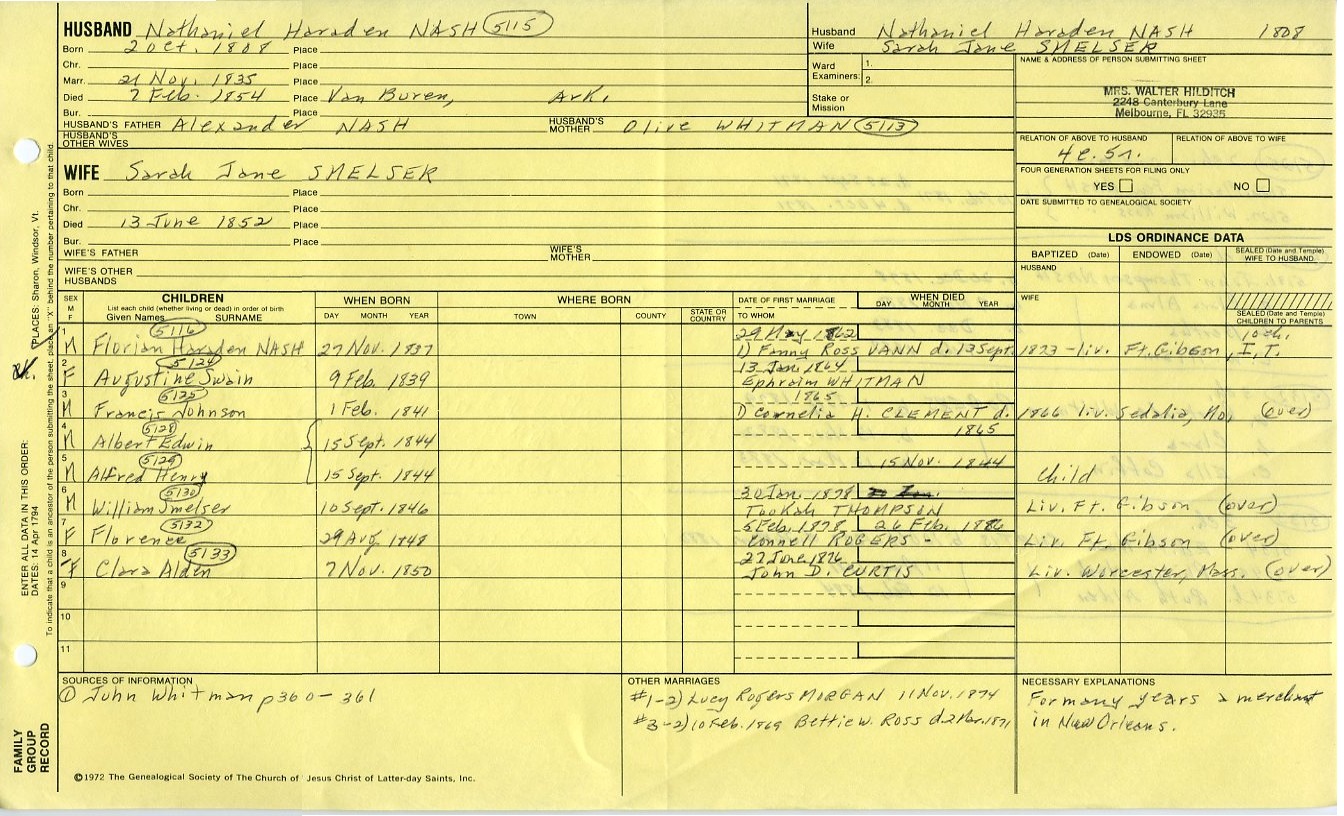 HUSBAND Nathaniel Haraden NASH 5115
Born 2 Oct. 1808 Place
Chr. Place
Marr. 21 Nov. 1835 Place
Died 7 Feb. 1854 Place Van Buren, Ark.
Bur. Place
HUSBAND'S FATHER Alexander NASH HUSBAND'S MOTHER Olive WHITMAN 5113
HUSBAND'S OTHER WIVES
Husband Nathaniel Haraden NASH 1808
Wife Sarah Jane SMELSER
Ward Examiners: 1.
2.
Stake or Mission
NAME & ADDRESS OF PERSON SUBMITTING SHEET
MRS. WALTER HILDITCH
2248 Canterbury Lane
Melbourne, FL 32935
RELATION OF ABOVE TO HUSBAND RELATION OF ABOVE TO WIFE
FOUR GENERATION SHEETS FOR FILING ONLY
YES NO
DATE SUBMITTED TO GENEALOGICAL SOCIETY
WIFE Sarah Jane SMELSER
Born Place
Chr. Place
Died 13 June 1852 Place
Bur. Place
WIFE'S FATHER WIFE'S MOTHER
WIFE'S OTHER HUSBANDS
LDS ORDINANCE DATA
BAPTIZED (Date) ENDOWED (Date) SEALED (Date and Temple) WIFE TO HUSBAND
HUSBAND
WIFE
SEALED (Date and Temple) CHILDREN TO PARENTS
SEX M F CHILDREN
List each child (whether living or dead) in order of birth
Given Names SURNAME
WHEN BORN DAY MONTH YEAR
WHERE BORN TOWN COUNTY STATE OR COUNTRY
DATE OF FIRST MARRIAGE TO WHOM
WHEN DIED DAY MONTH YEAR
5116 29 May 1862
1 M Florian Haraden NASH 27 Nov. 1837 1) Fanny Ross VANN d. 13 Sept. 1873 - liv. Ft. Gibson, I.T.
5124 13 Jan. 1864
2 F Augustine Swain 9 Feb. 1839 Ephraim WHITMAN
5125 1865
3 M Francis Johnson 1 Feb. 1841 1) Cornelia H. CLEMENT d. 1866 liv. Sedalia, Mo. (over)
5128 1865
4 M Albert Edwin 15 Sept. 1844
5129 15 Nov. 1844
5 M Alfred Henry 15 Sept. 1844 Child
5130 30 Jan. 1878
6 M William Smelser 10 Sept. 1846 Tookah THOMPSON Liv. Ft. Gibson (over)
5132 5 Feb. 1878 26 Feb. 1886
7 F Florence 29 Aug. 1848 Connell ROGERS - Liv. Ft. Gibson (over)
5133 27 June 1876
8 F Clara Alden 7 Nov. 1850 John D. CURTIS Liv. Worcester, Mass. (over)
9
10
11
SOURCES OF INFORMATION
① John Whitman p360-361
OTHER MARRIAGES
#1-2) Lucy Rogers MORGAN 11 Nov. 1874
#3-2) 10 Feb. 1869 Bettie W. Ross d. 2 Mar. 1871
NECESSARY EXPLANATIONS
For many years a merchant
in New Orleans.
©1972 The Genealogical Society of The Church of Jesus Christ of Latter-day Saints, Inc.
FAMILY GROUP RECORD
ENTER ALL DATA IN THIS ORDER:
DATES: 14 Apr 1794 PLACES: Sharon, Windsor, Vt.
To indicate that a child is an ancestor of the person submitting the sheet, place an "X" behind the number pertaining to that child.